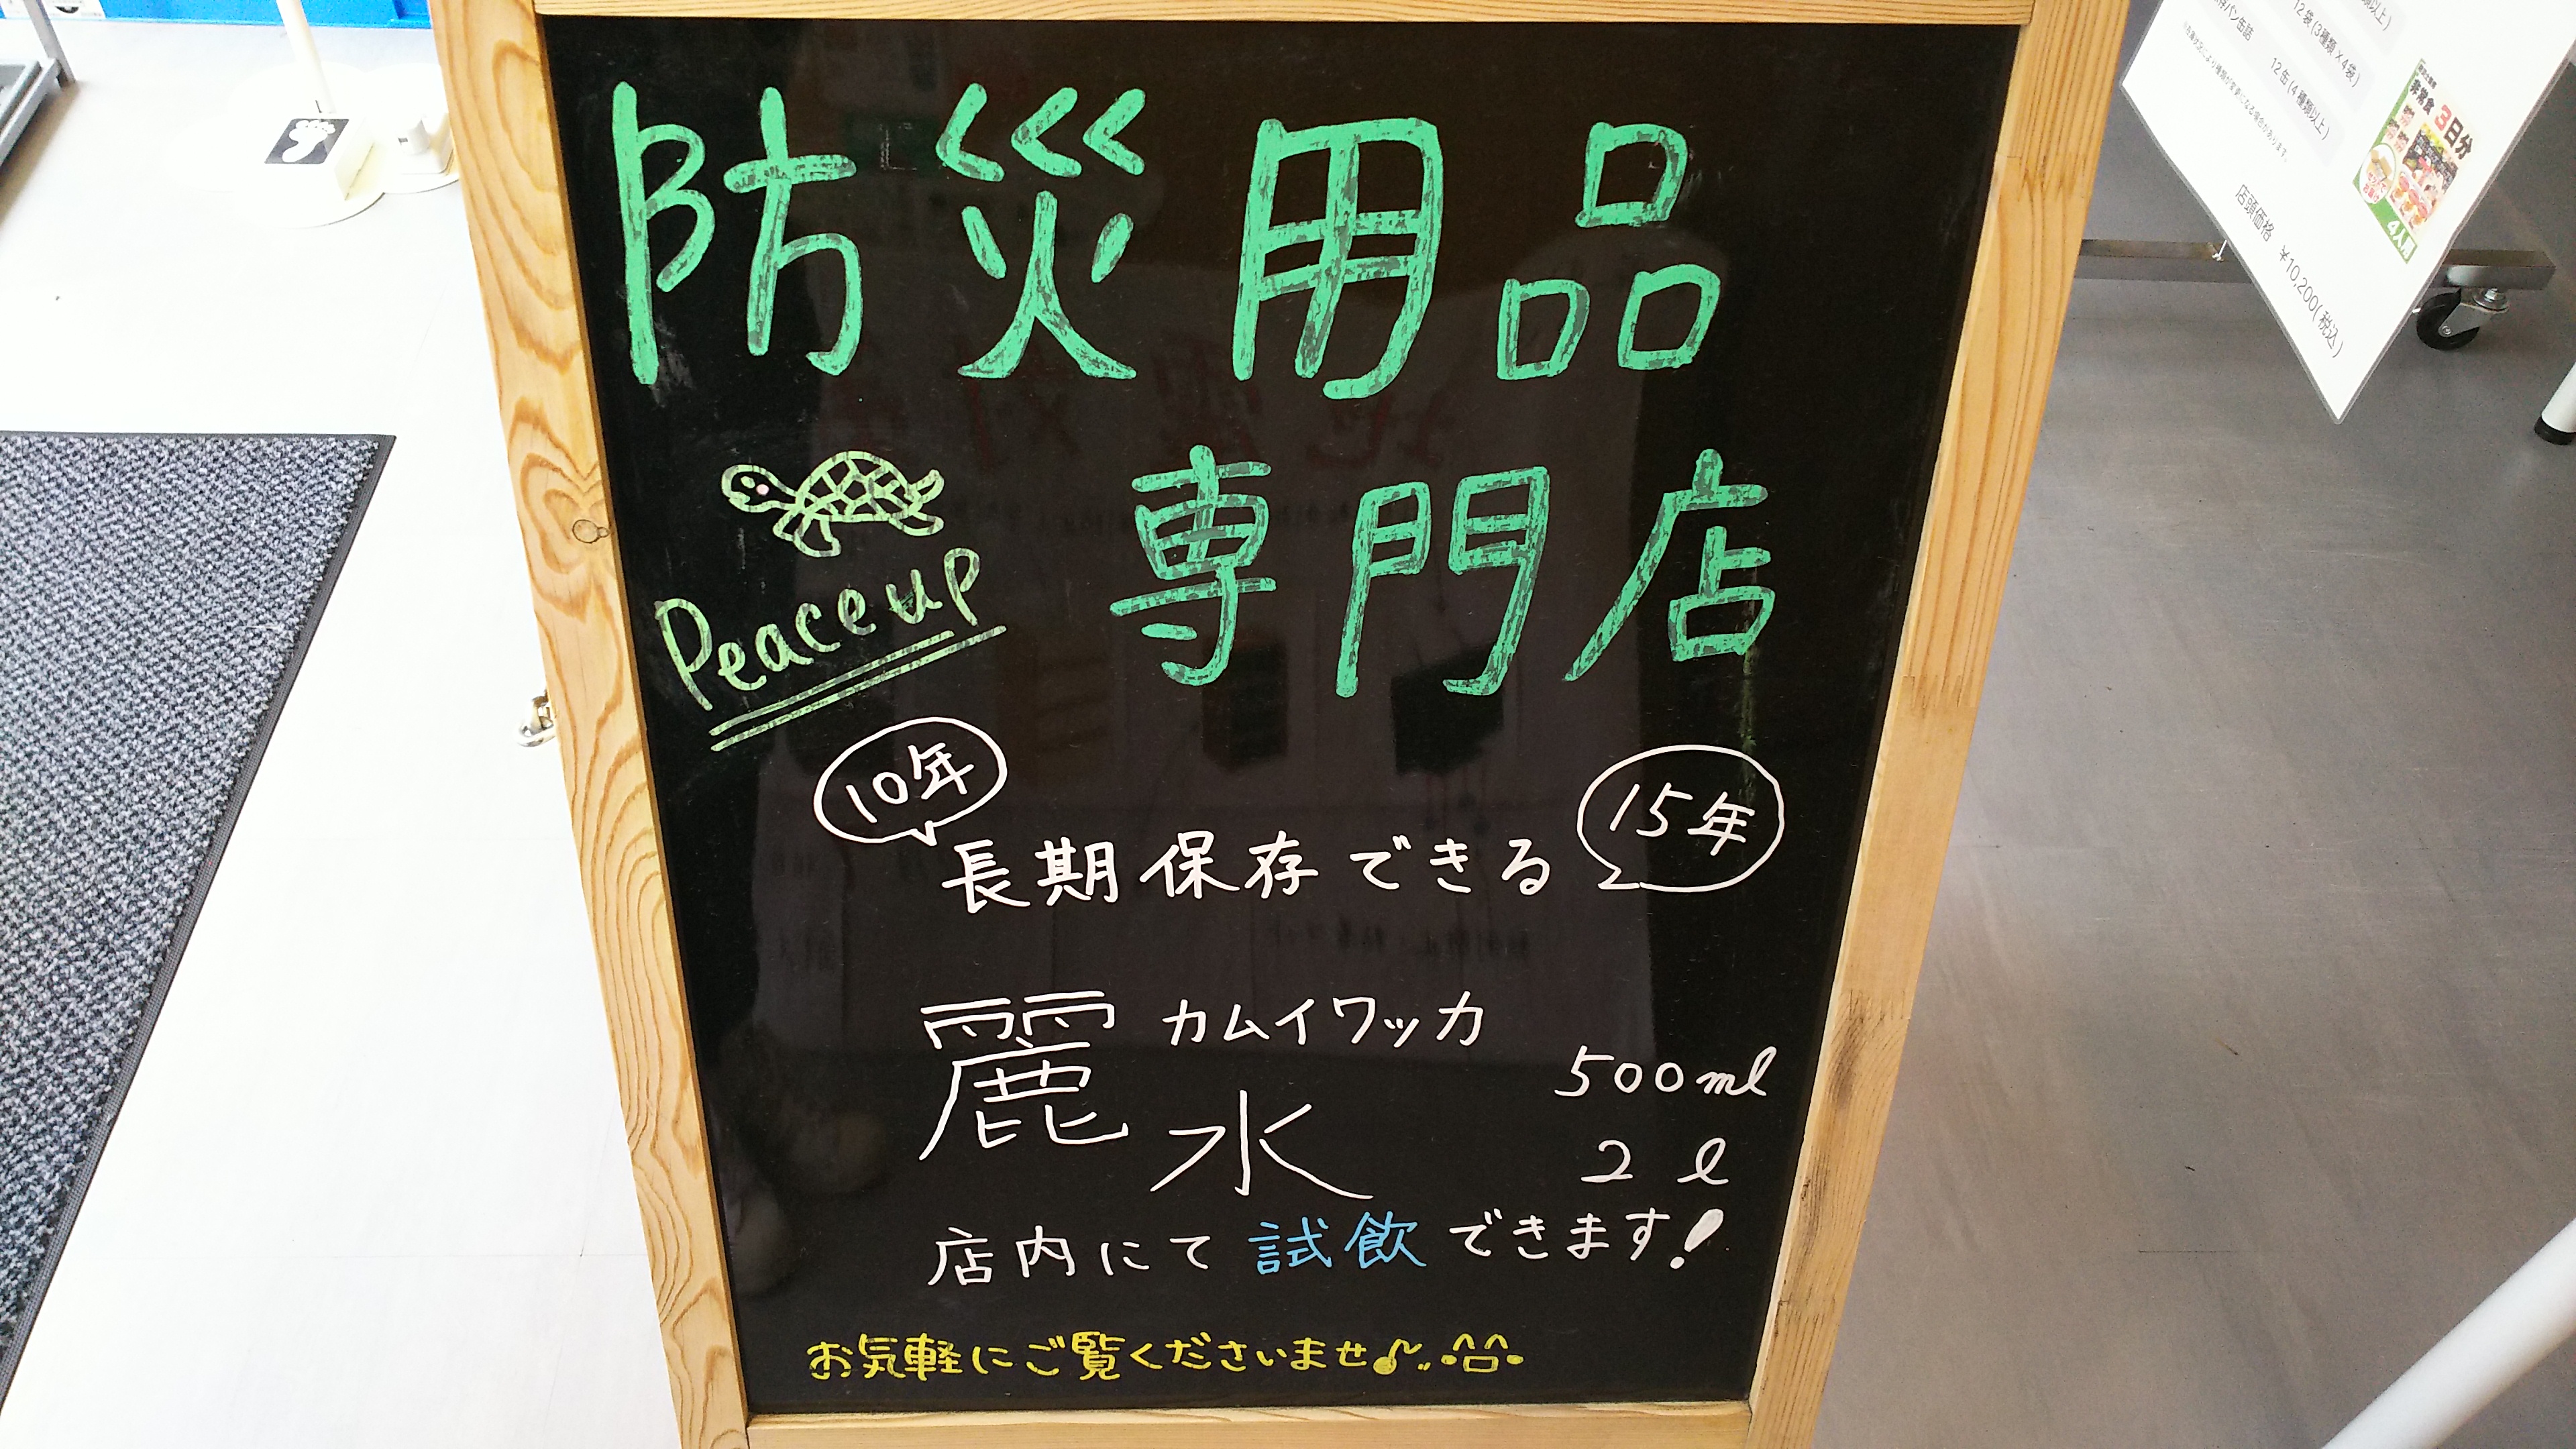 防災用品
専門店
Peaceup
10年
15年
長期保存できる
カムイワッカ
麗水
500ml
2l
店内にて試飲できます!
お気軽にご覧くださいませ♪
12袋(3種類×4袋)
12缶(4種類以上)
非常食 3日分
4人用
店頭価格 ¥10,200(税込)